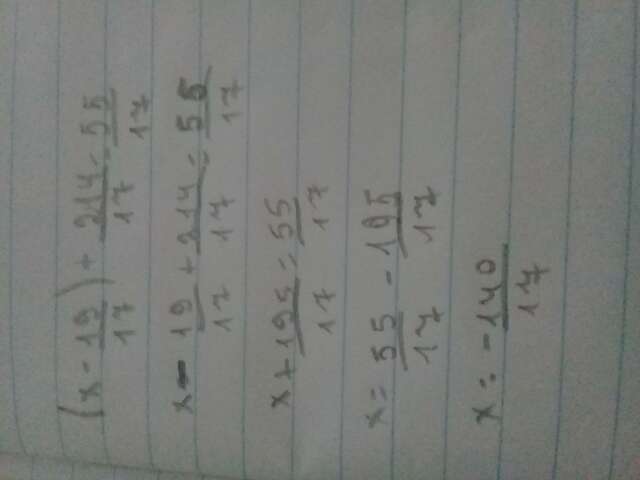 (x - 19/17) + 214/17 = 55/17
x - 19/17 + 214/17 = 55/17
x + 195/17 = 55/17
x = 55/17 - 195/17
x = -140/17